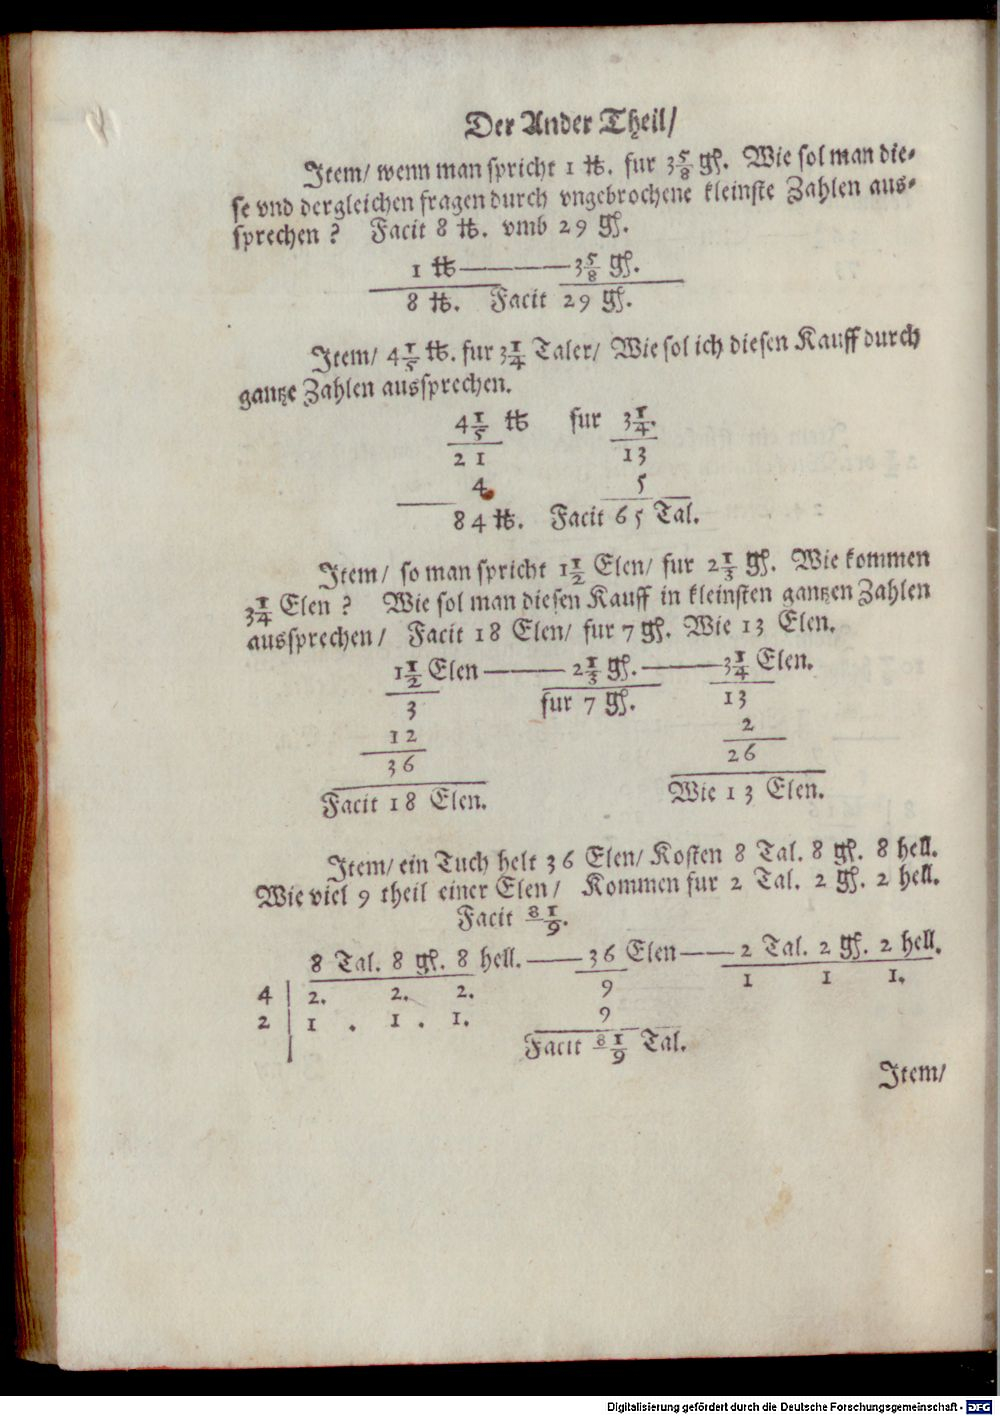 Der Ander Theil/
Item/ wenn man spricht 1 ℔. fur 3 5/8 gl. Wie sol man die-
se vnd dergleichen fragen durch vngebrochene kleinste Zahlen aus-
sprechen ? Facit 8 ℔. vmb 29 gl.
1 ℔ ——— 3 5/8 gl.
8 ℔. Facit 29 gl.
Item/ 4 1/5 ℔. fur 3 1/4 Taler/ Wie sol ich diesen Kauff durch
gantze Zahlen aussprechen.
4 1/5 ℔ fur 3 1/4.
21 13
4 5
84 ℔. Facit 65 Tal.
Item/ so man spricht 1 1/2 Elen/ fur 2 1/3 gl. Wie kommen
3 1/4 Elen ? Wie sol man diesen Kauff in kleinsten gantzen Zahlen
aussprechen/ Facit 18 Elen/ fur 7 gl. Wie 13 Elen.
1 1/2 Elen ——— 2 1/3 gl. ——— 3 1/4 Elen.
3 fur 7 gl. 13
12 2
36 26
Facit 18 Elen. Wie 13 Elen.
Item/ ein Tuch helt 36 Elen/ Kosten 8 Tal. 8 gl. 8 hell.
Wie viel 9 theil einer Elen/ Kommen fur 2 Tal. 2 gl. 2 hell.
Facit 81/9.
8 Tal. 8 gl. 8 hell. —— 36 Elen —— 2 Tal. 2 gl. 2 hell.
4 | 2. 2. 2. 9 1 1 1.
2 | 1 . 1 . 1. 9
Facit 81/9 Tal.
Item/
Digitalisierung gefördert durch die Deutsche Forschungsgemeinschaft - DFG